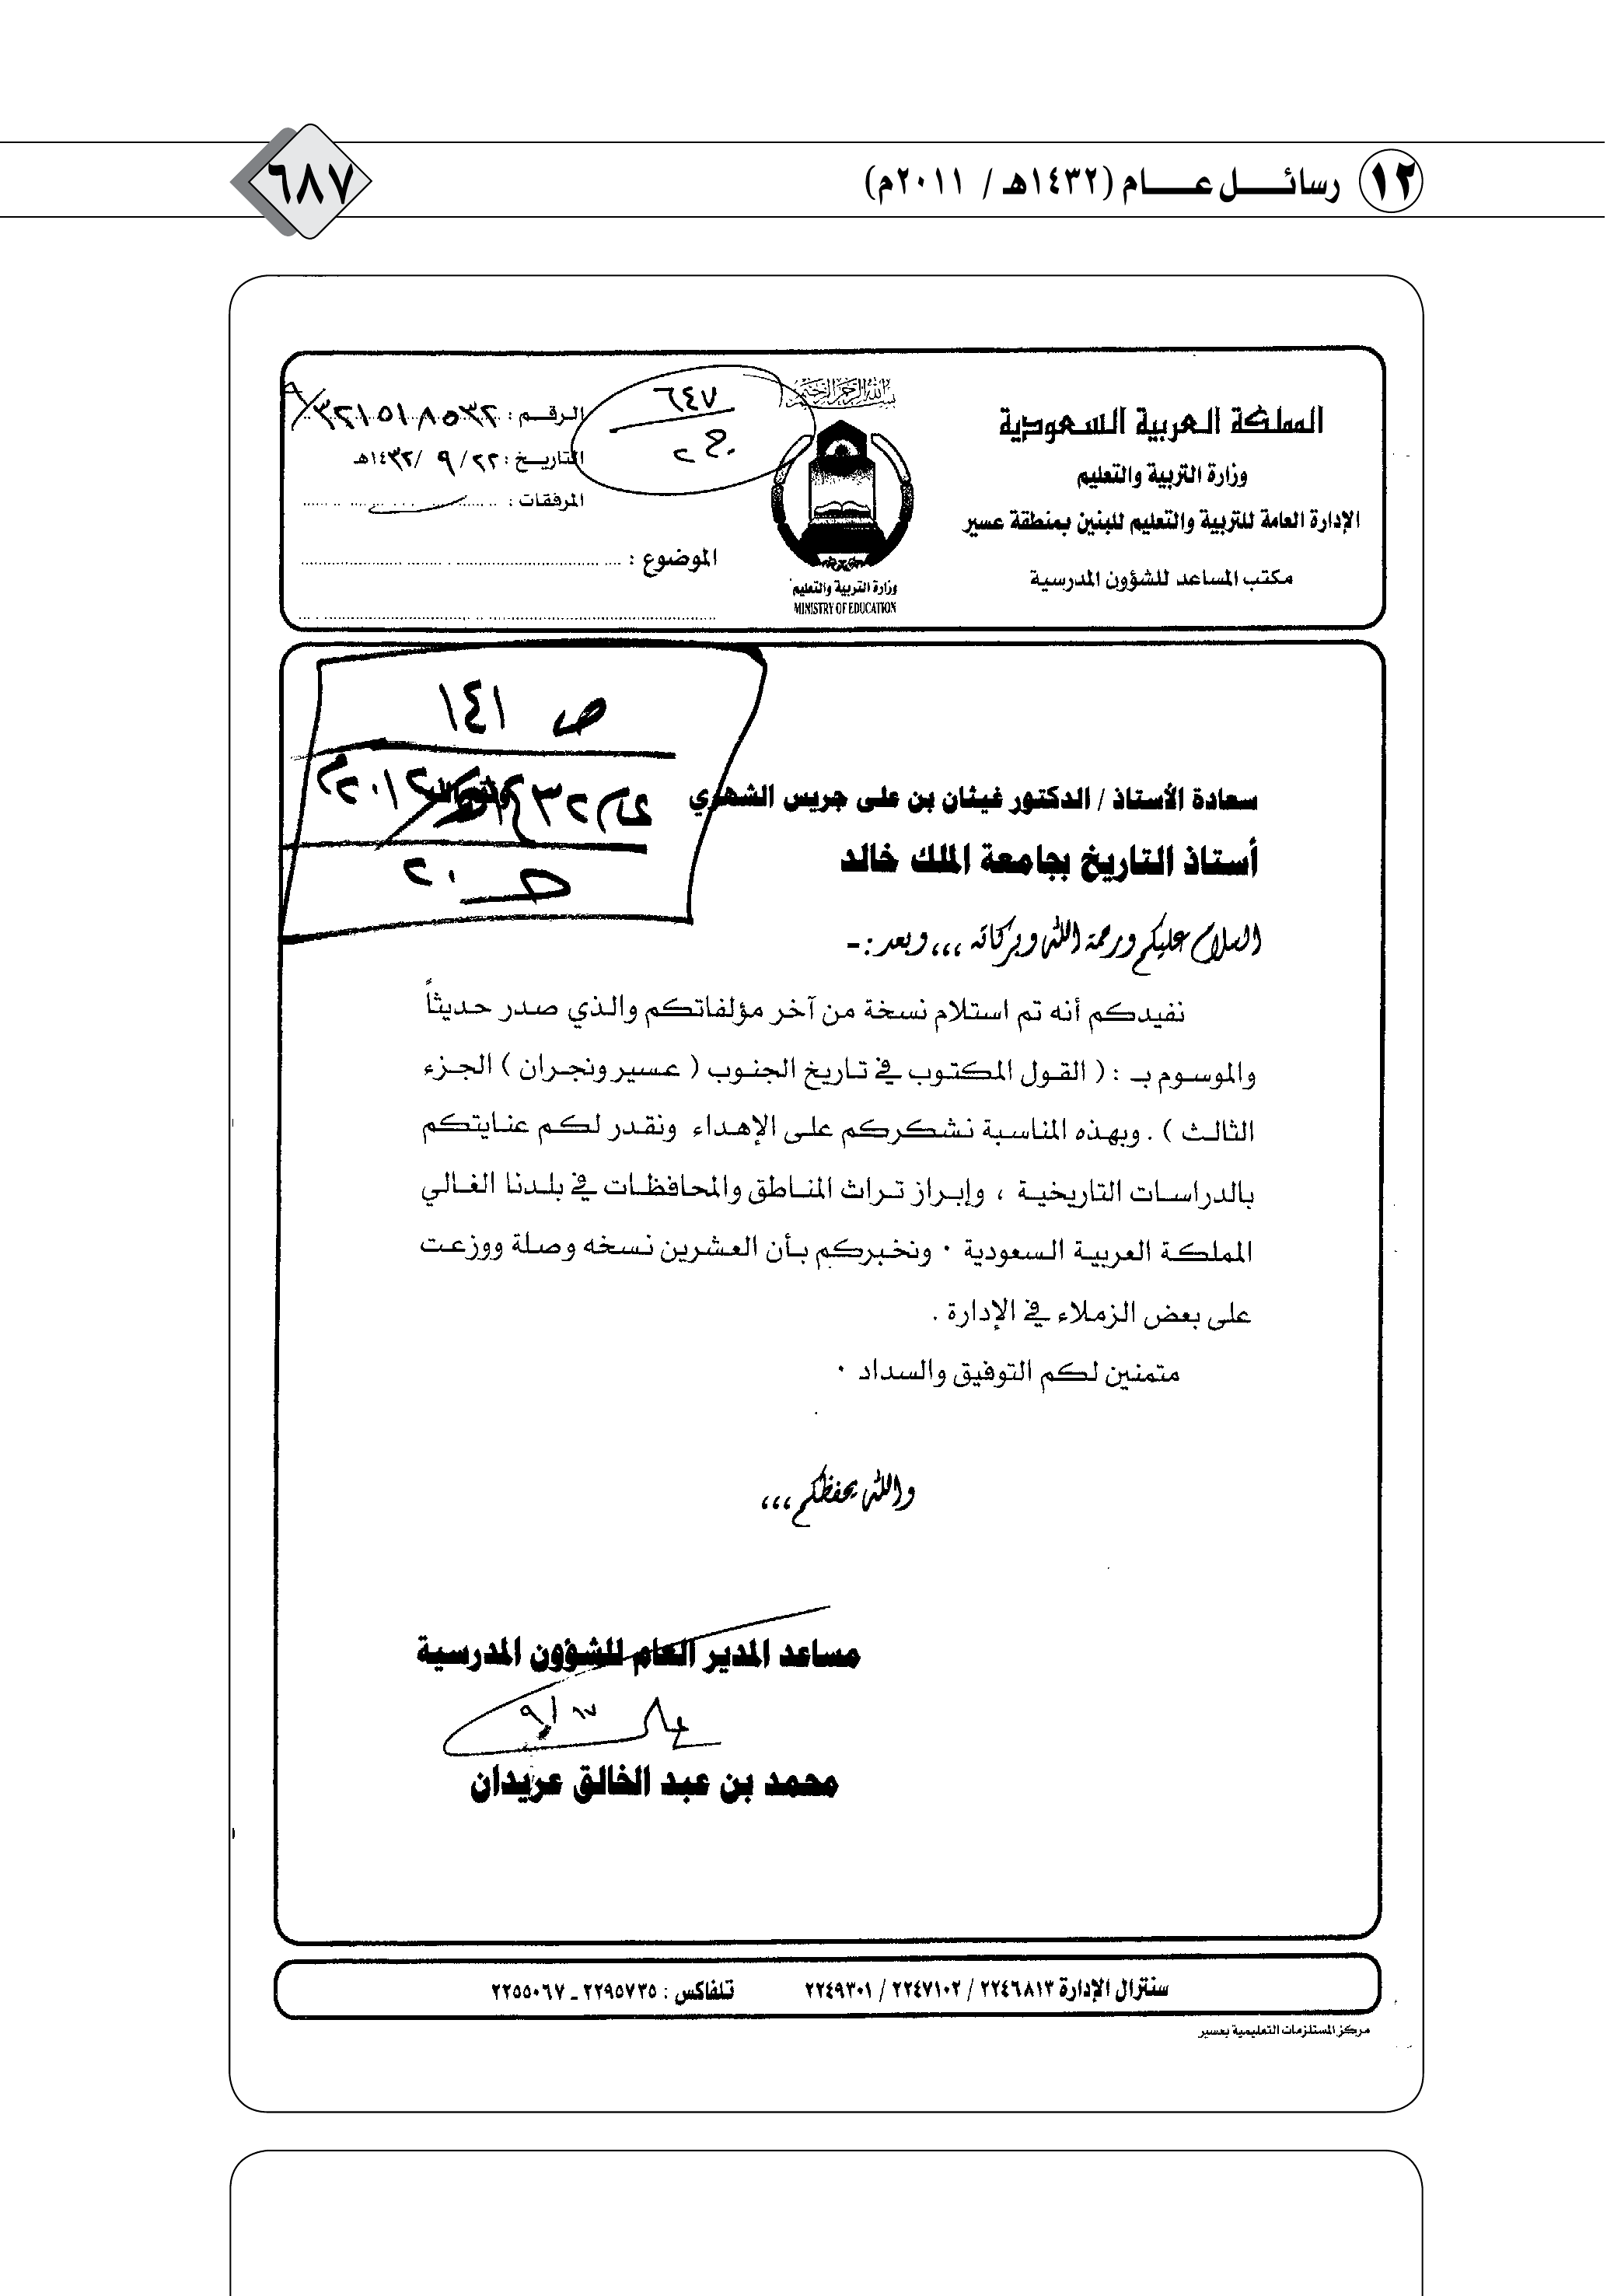 ١٢ رسائــــل عــــام (١٤٣٢هـ / ٢٠١١م)
٦٨٧
المملكة العربية السعودية
وزارة التربية والتعليم
الإدارة العامة للتربية والتعليم للبنين بمنطقة عسير
مكتب المساعد للشؤون المدرسية
بسم الله الرحمن الرحيم
وزارة التربية والتعليم
MINISTRY OF EDUCATION
٦٤٧
الرقم :
التاريخ : ٢٢/ ٩ /١٤٣٢هـ
المرفقات :
الموضوع :
ص ١٤١
سعادة الأستاذ / الدكتور غيثان بن على جريس الشهري
أستاذ التاريخ بجامعة الملك خالد
السلام عليكم ورحمة الله وبركاته ،،، وبعد :-
نفيدكم أنه تم استلام نسخة من آخر مؤلفاتكم والذي صدر حديثاً
والموسوم بـ : ( القول المكتوب في تاريخ الجنوب ( عسير ونجران ) الجزء
الثالث ) . وبهذه المناسبة نشكركم على الإهداء ونقدر لكم عنايتكم
بالدراسات التاريخية ، وإبراز تراث المناطق والمحافظات في بلدنا الغالي
المملكة العربية السعودية ٠ ونخبركم بأن العشرين نسخه وصلة ووزعت
على بعض الزملاء في الإدارة .
متمنين لكم التوفيق والسداد ٠
والله يحفظكم ،،،
مساعد المدير العام للشؤون المدرسية
محمد بن عبد الخالق عريدان
سنترال الإدارة ٢٢٤٦٨١٣ / ٢٢٤٧١٠٢ / ٢٢٤٩٣٠١ تلفاكس : ٢٢٩٥٧٣٥ ـ ٢٢٥٥٠٦٧
مركز المستلزمات التعليمية بعسير